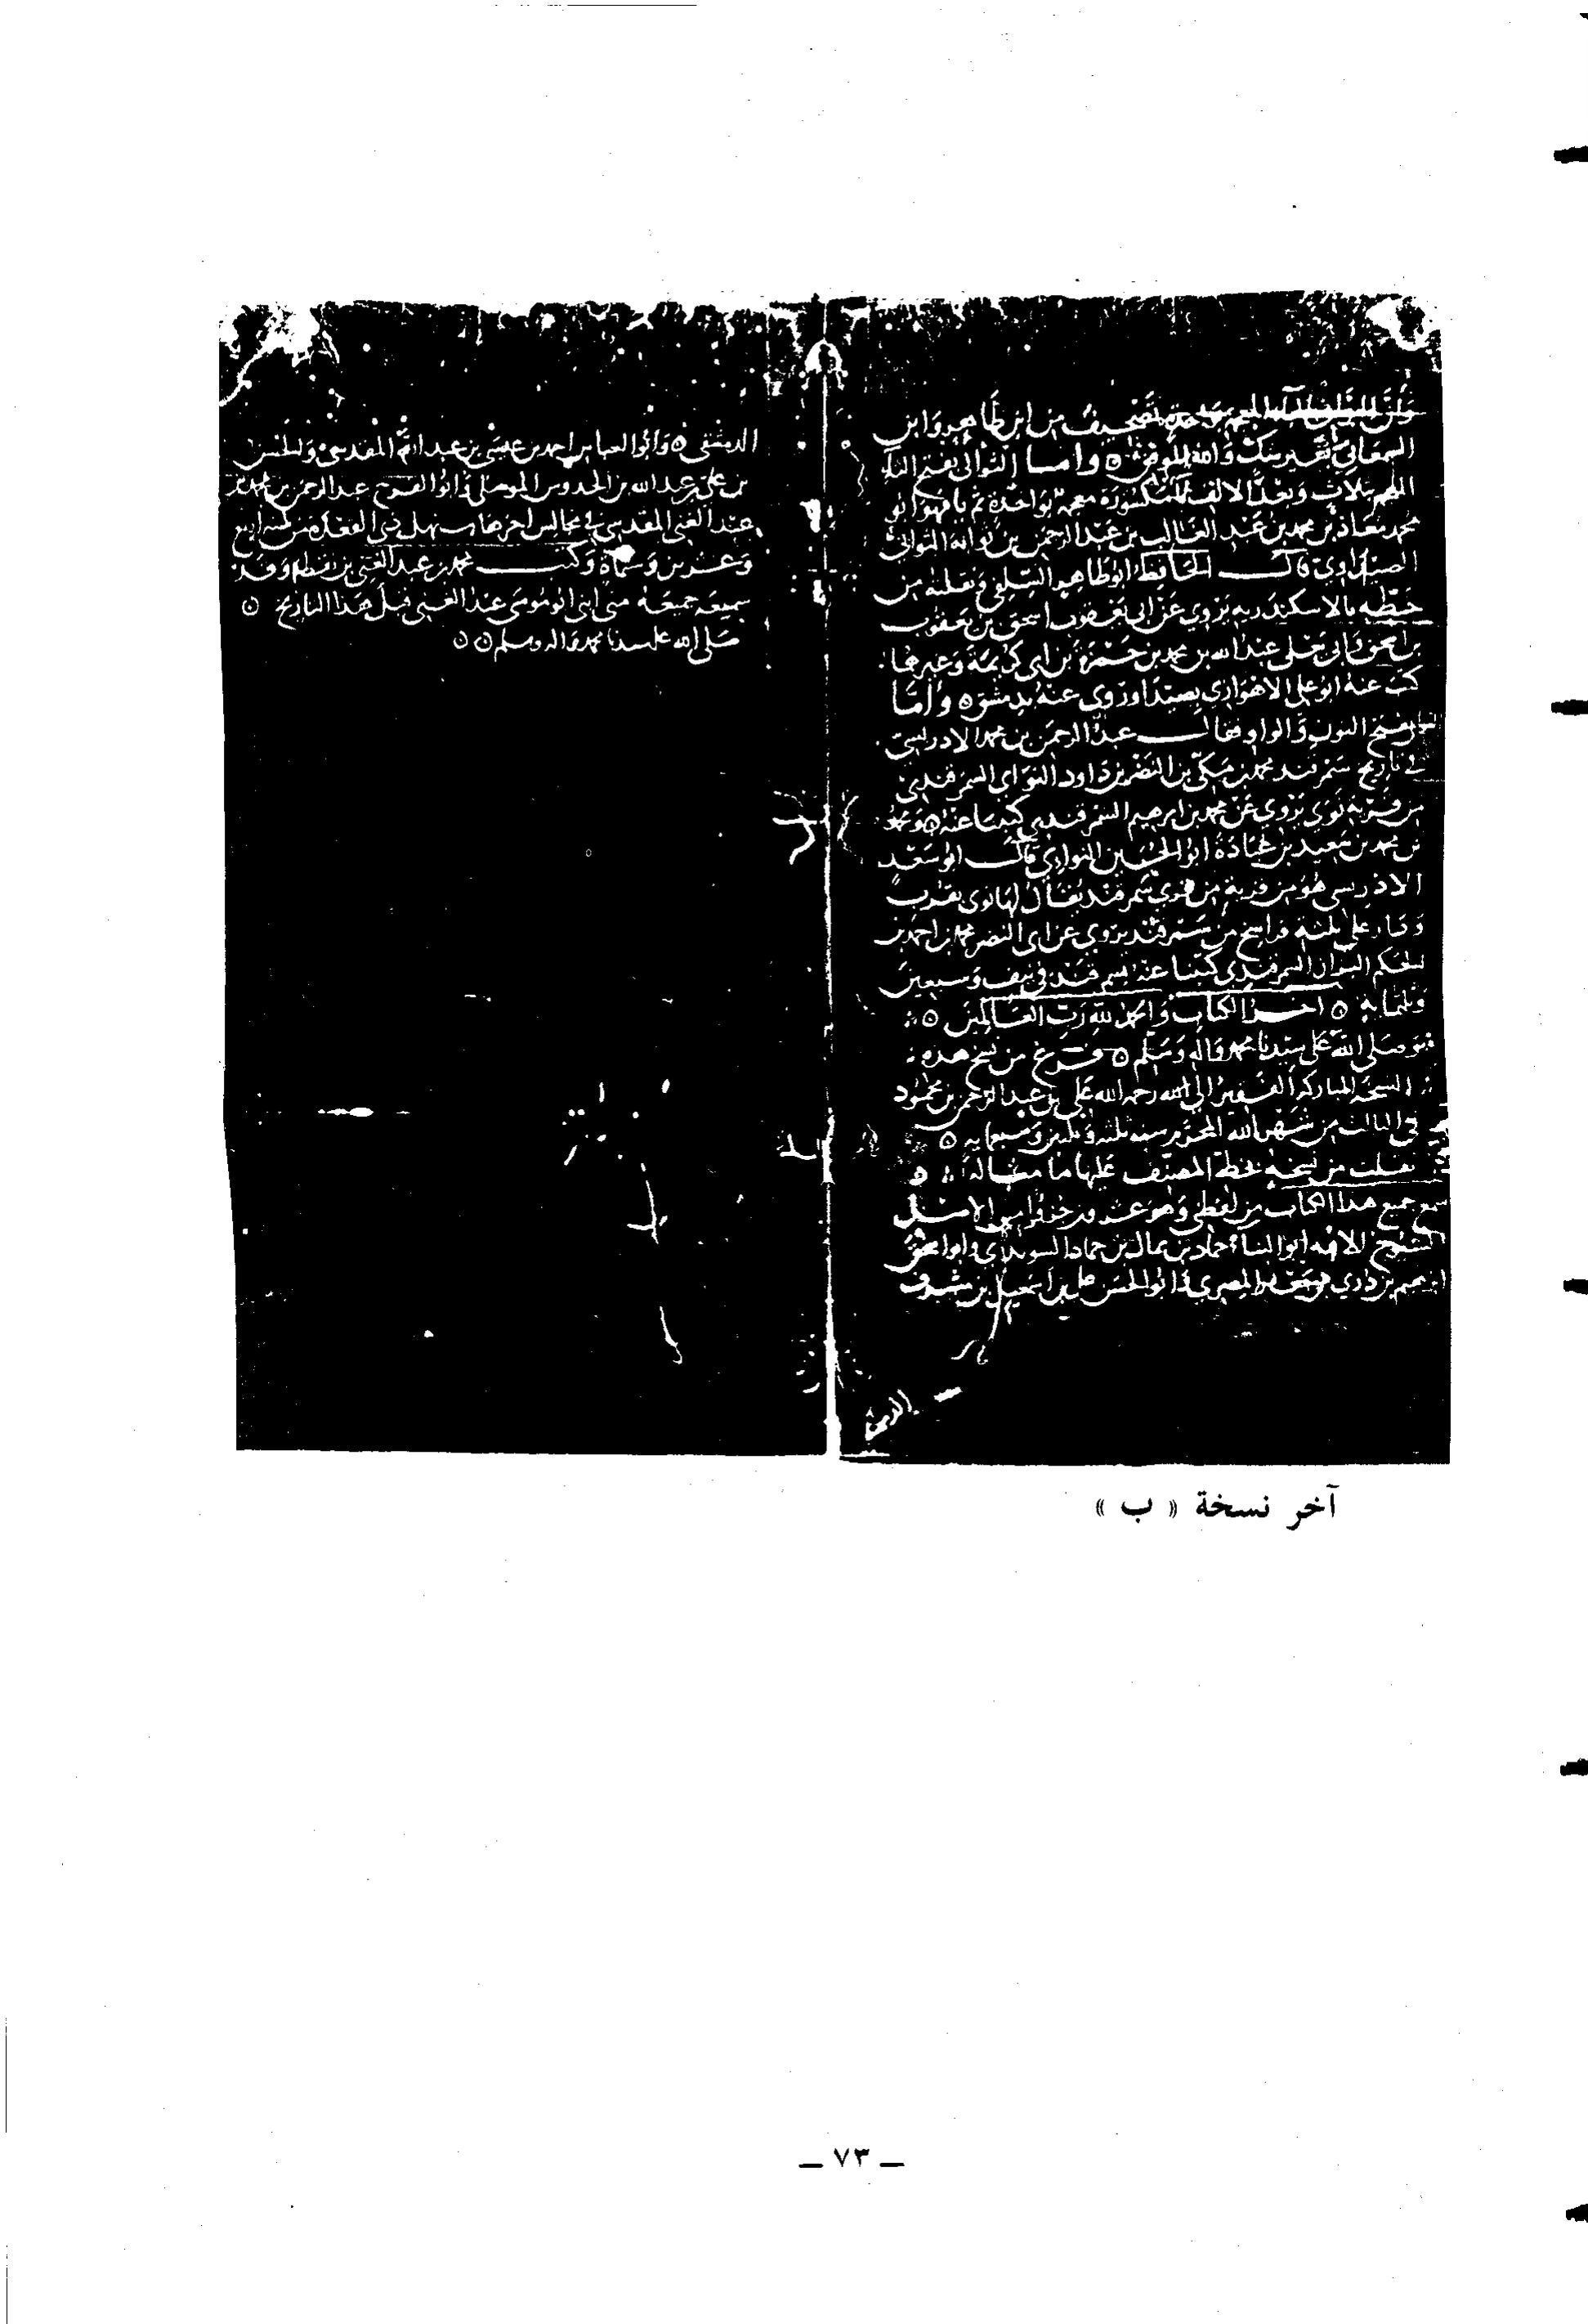 تصحيف من ابن طاهر وابن
السمعاني بغير شك والله الموفق ۞ واما الثوابي بفتح الثاء
المعجم بثلاث وبعد الالف مكسورة معجمة بواحدة ثم يا فهو ابو
محمد معاذ بن محمد بن عبد الغالب بن عبد الرحمن بن ثوابة الثوابي
الصيداوي قال الحافظ ابو طاهر السلفي ونقلته من
خطه بالاسكندرية يروي عن ابي يعقوب اسحق بن يعقوب
وابي يعلى عبد الله بن محمد بن حمزة بن ابي كريمة وغيرهما
كتب عنه ابو علي الاهوازي بصيدا وروى عنه بدمشق ۞ واما
بفتح النون والواو فقال عبد الرحمن بن محمد الادريسي
في تاريخ سمرقند محمد بن مكي بن النضر بن داود النوائي السمرقندي
من قرية نوى يروي عن محمد بن ابرهيم السمرقندي كتبنا عنه ۞ ومحمد
بن محمد بن سعيد بن عبادة ابو الحسين النوائي قال ابو سعد
الادريسي هو من قرية من قرى سمرقند يقال لها نوى بقرب
وذار على ثلثة فراسخ من سمرقند يروي عن ابي النضر محمد بن احمد بن
الحكم السمرقندي كتبنا عنه بسمرقند في نيف وسبعين
وثلثماية ۞ اخر الكتاب والحمد لله رب العالمين ۞
وصلى الله على سيدنا محمد واله وسلم ۞ فرغ من نسخ هذه
النسخة المباركة الفقير الى الله رحمه الله علي بن عبد الرحمن بن محمود
في الثالث من شهر الله المحرم سنة ثلثة وثلثين وسبعماية ۞
نقلت من نسخة بخط المصنف عليها ما مثاله ۞
سمع جميع هذا الكتاب من لفظي وهو عدة اجزا من الاصل
الشيوخ الايمة ابو الثناء حماد بن حماد السويداوي وابو اسحق
ابرهيم بن المصري وابو الحسن علي بن اسمعيل بن مشرف
الدمشقي ۞ وابو العباس احمد بن عيسى بن عبد الله المقدسي والحسن
بن علي بن عبد الله بن الحدوس الموصلي وابو الفرج عبد الرحمن بن محمد بن
عبد الغني المقدسي في مجالس اخرها مستهل ذي القعدة من سنة اربع
وعشرين وستماة وكتب محمد بن عبد الغني بن نقطة وقد
سمعه جميعه مني ابني ابو موسى عبد الغني قبل هذا التاريخ ۞
صلى الله على سيدنا محمد واله وسلم ۞ ۞
آخر نسخة « ب »
ـ ٧٣ ـ